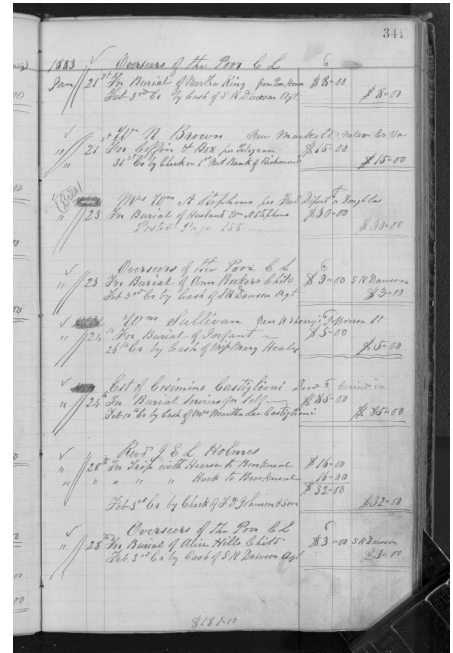 341
1883 Overseers of the Poor C L
Jan 21st For Burial of Martha King from Poor House $8-00
Feb 3rd Cr by Cash of S R Dawson Agt $8-00
Wm R Brown New Market Nelson Co Va
" 21 For Coffin & Box per Telegram $15-00
31st Cr by Check on 1st Nat Bank of Richmond $15-00
Mrs Wm A Stephens per Fred
" 23 For Burial of Husband Wm A Stephens $30-00
Posted Page 155 $30-00
Overseers of the Poor C L
" 23 For Burial of Ann Bookers Child $3-00 S R Dawson
Feb 3rd Cr by Cash of S R Dawson Agt $3-00
Wm Sullivan near Jefferson St
" 24 For Burial of Infant $5-00
26th Cr by Cash of Mary Healy $5-00
Est of Cosimino Castiglioni
" 24th For Burial Services for Self $85-00
Feb 10th Cr by Cash of Mrs Martha Lee Castiglioni $85-00
Revd J E L Holmes
" 28th For Trip with Hearse to Brookneal $16-00
" " " " Hack to Brookneal 16-00
$32-00
Feb 3rd Cr by Check of F D Johnson & Son $32-00
Overseers of the Poor C L
" 28th For Burial of Alice Hills Child $3-00 S R Dawson
Feb 3rd Cr by Cash of S R Dawson Agt $3-00
$181-00